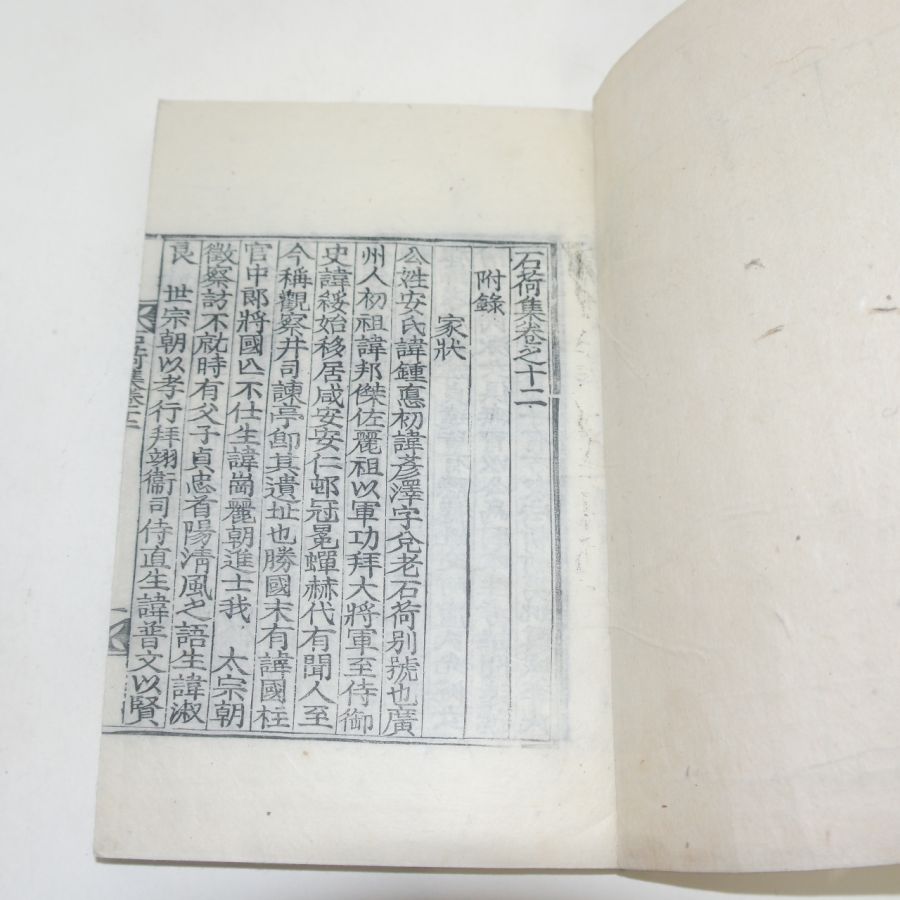 石荷集卷之十二
附錄
家狀
公姓安氏諱鍾悳初諱彦澤字兌老石荷別號也廣
州人初祖諱邦傑佐麗祖以軍功拜大將軍至侍御
史諱綏始移居咸安安仁邨冠冕蟬赫代有聞人至
今稱觀察井司諫亭卽其遺址也勝國末有諱國柱
官中郞將國亾不仕生諱崗麗朝進士我 太宗朝
徵察訪不就時有父子貞忠首陽淸風之語生諱淑
良 世宗朝以孝行拜翊衞司侍直生諱普文以賢
石荷集卷十二